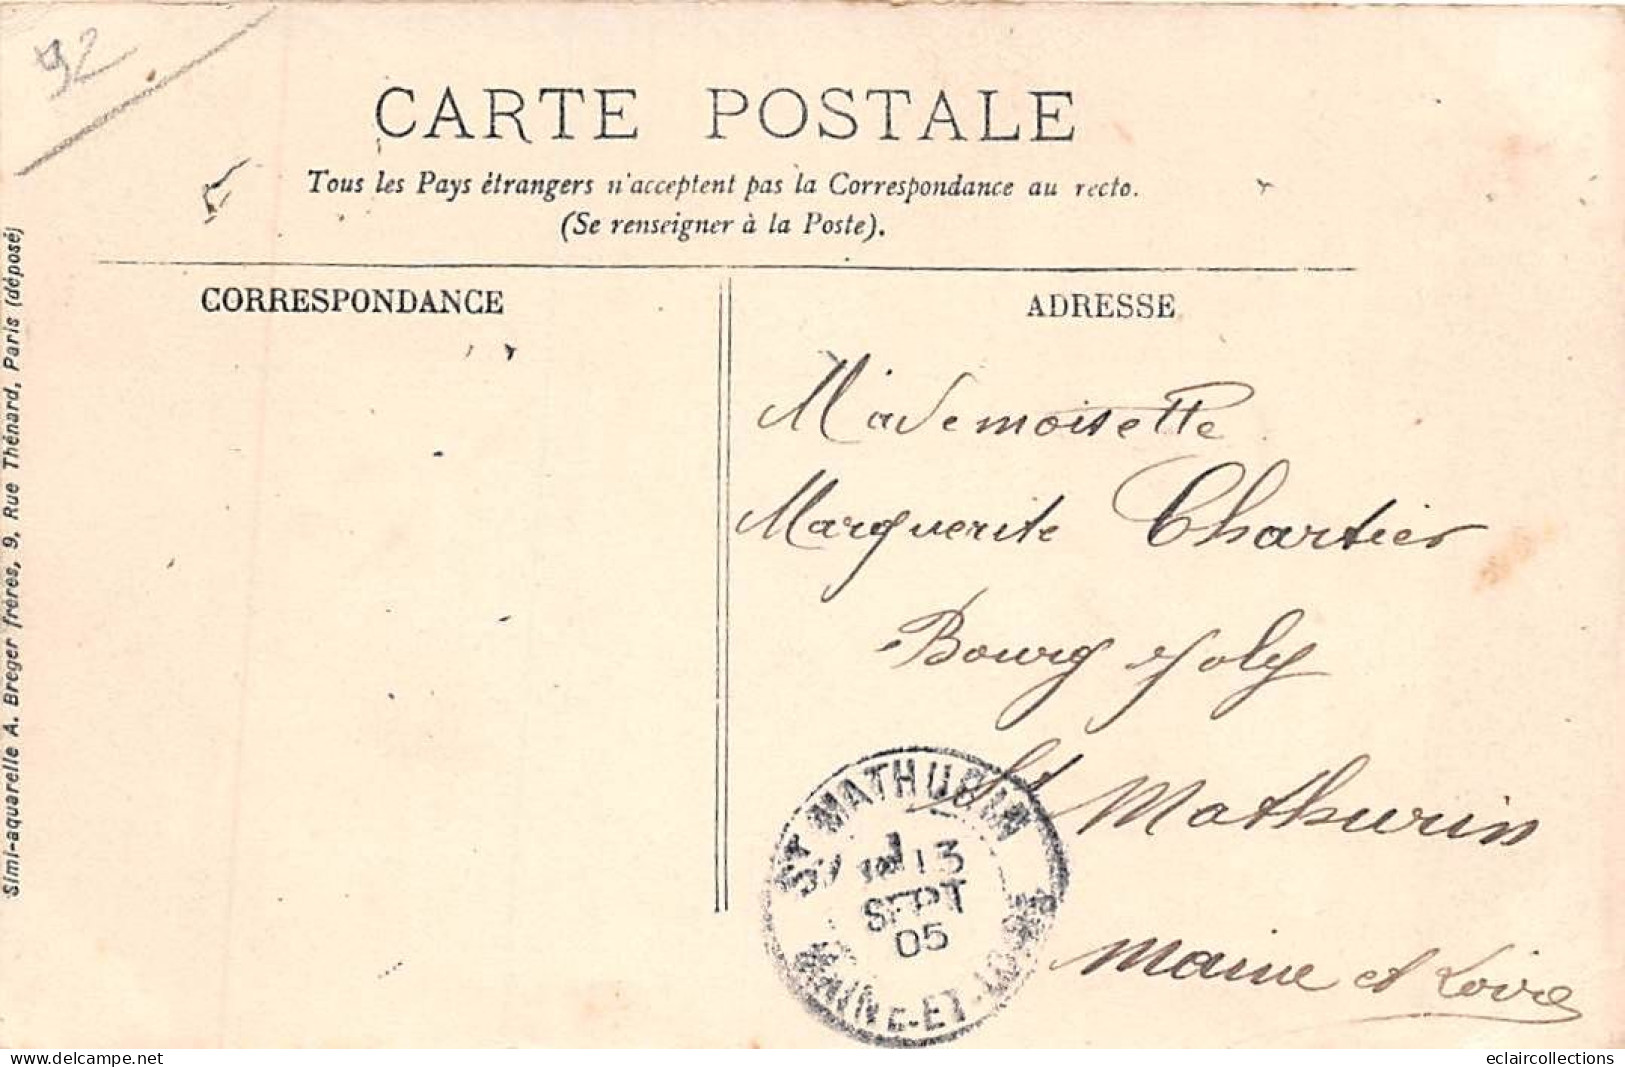 92
CARTE POSTALE
Tous les Pays étrangers n'acceptent pas la Correspondance au recto.
(Se renseigner à la Poste).
CORRESPONDANCE
ADRESSE
Mademoiselle
Marguerite Chartier
Bourg Joly
St Mathurin
Maine et Loire
ST MATHURIN
13
SEPT
05
MAINE-ET-LOIRE
Simi-aquarelle A. Breger frères, 9, Rue Thénard, Paris (déposé)
eclaircollections